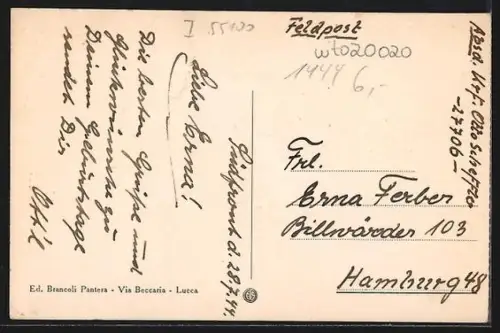 I 55120
Südfront d. 28.7.44.
Liebe Erna!
Die besten Grüße und
Glückwünsche zu
Deinem Geburtstage
sendet Dir
Feldpost
wto20020
1944 6,-
Absd. Uffz. Otto
-27706-
Frl.
Erna Ferber
Billwärder 103
Hamburg 48
Ed. Brancoli Pantera - Via Beccaria - Lucca